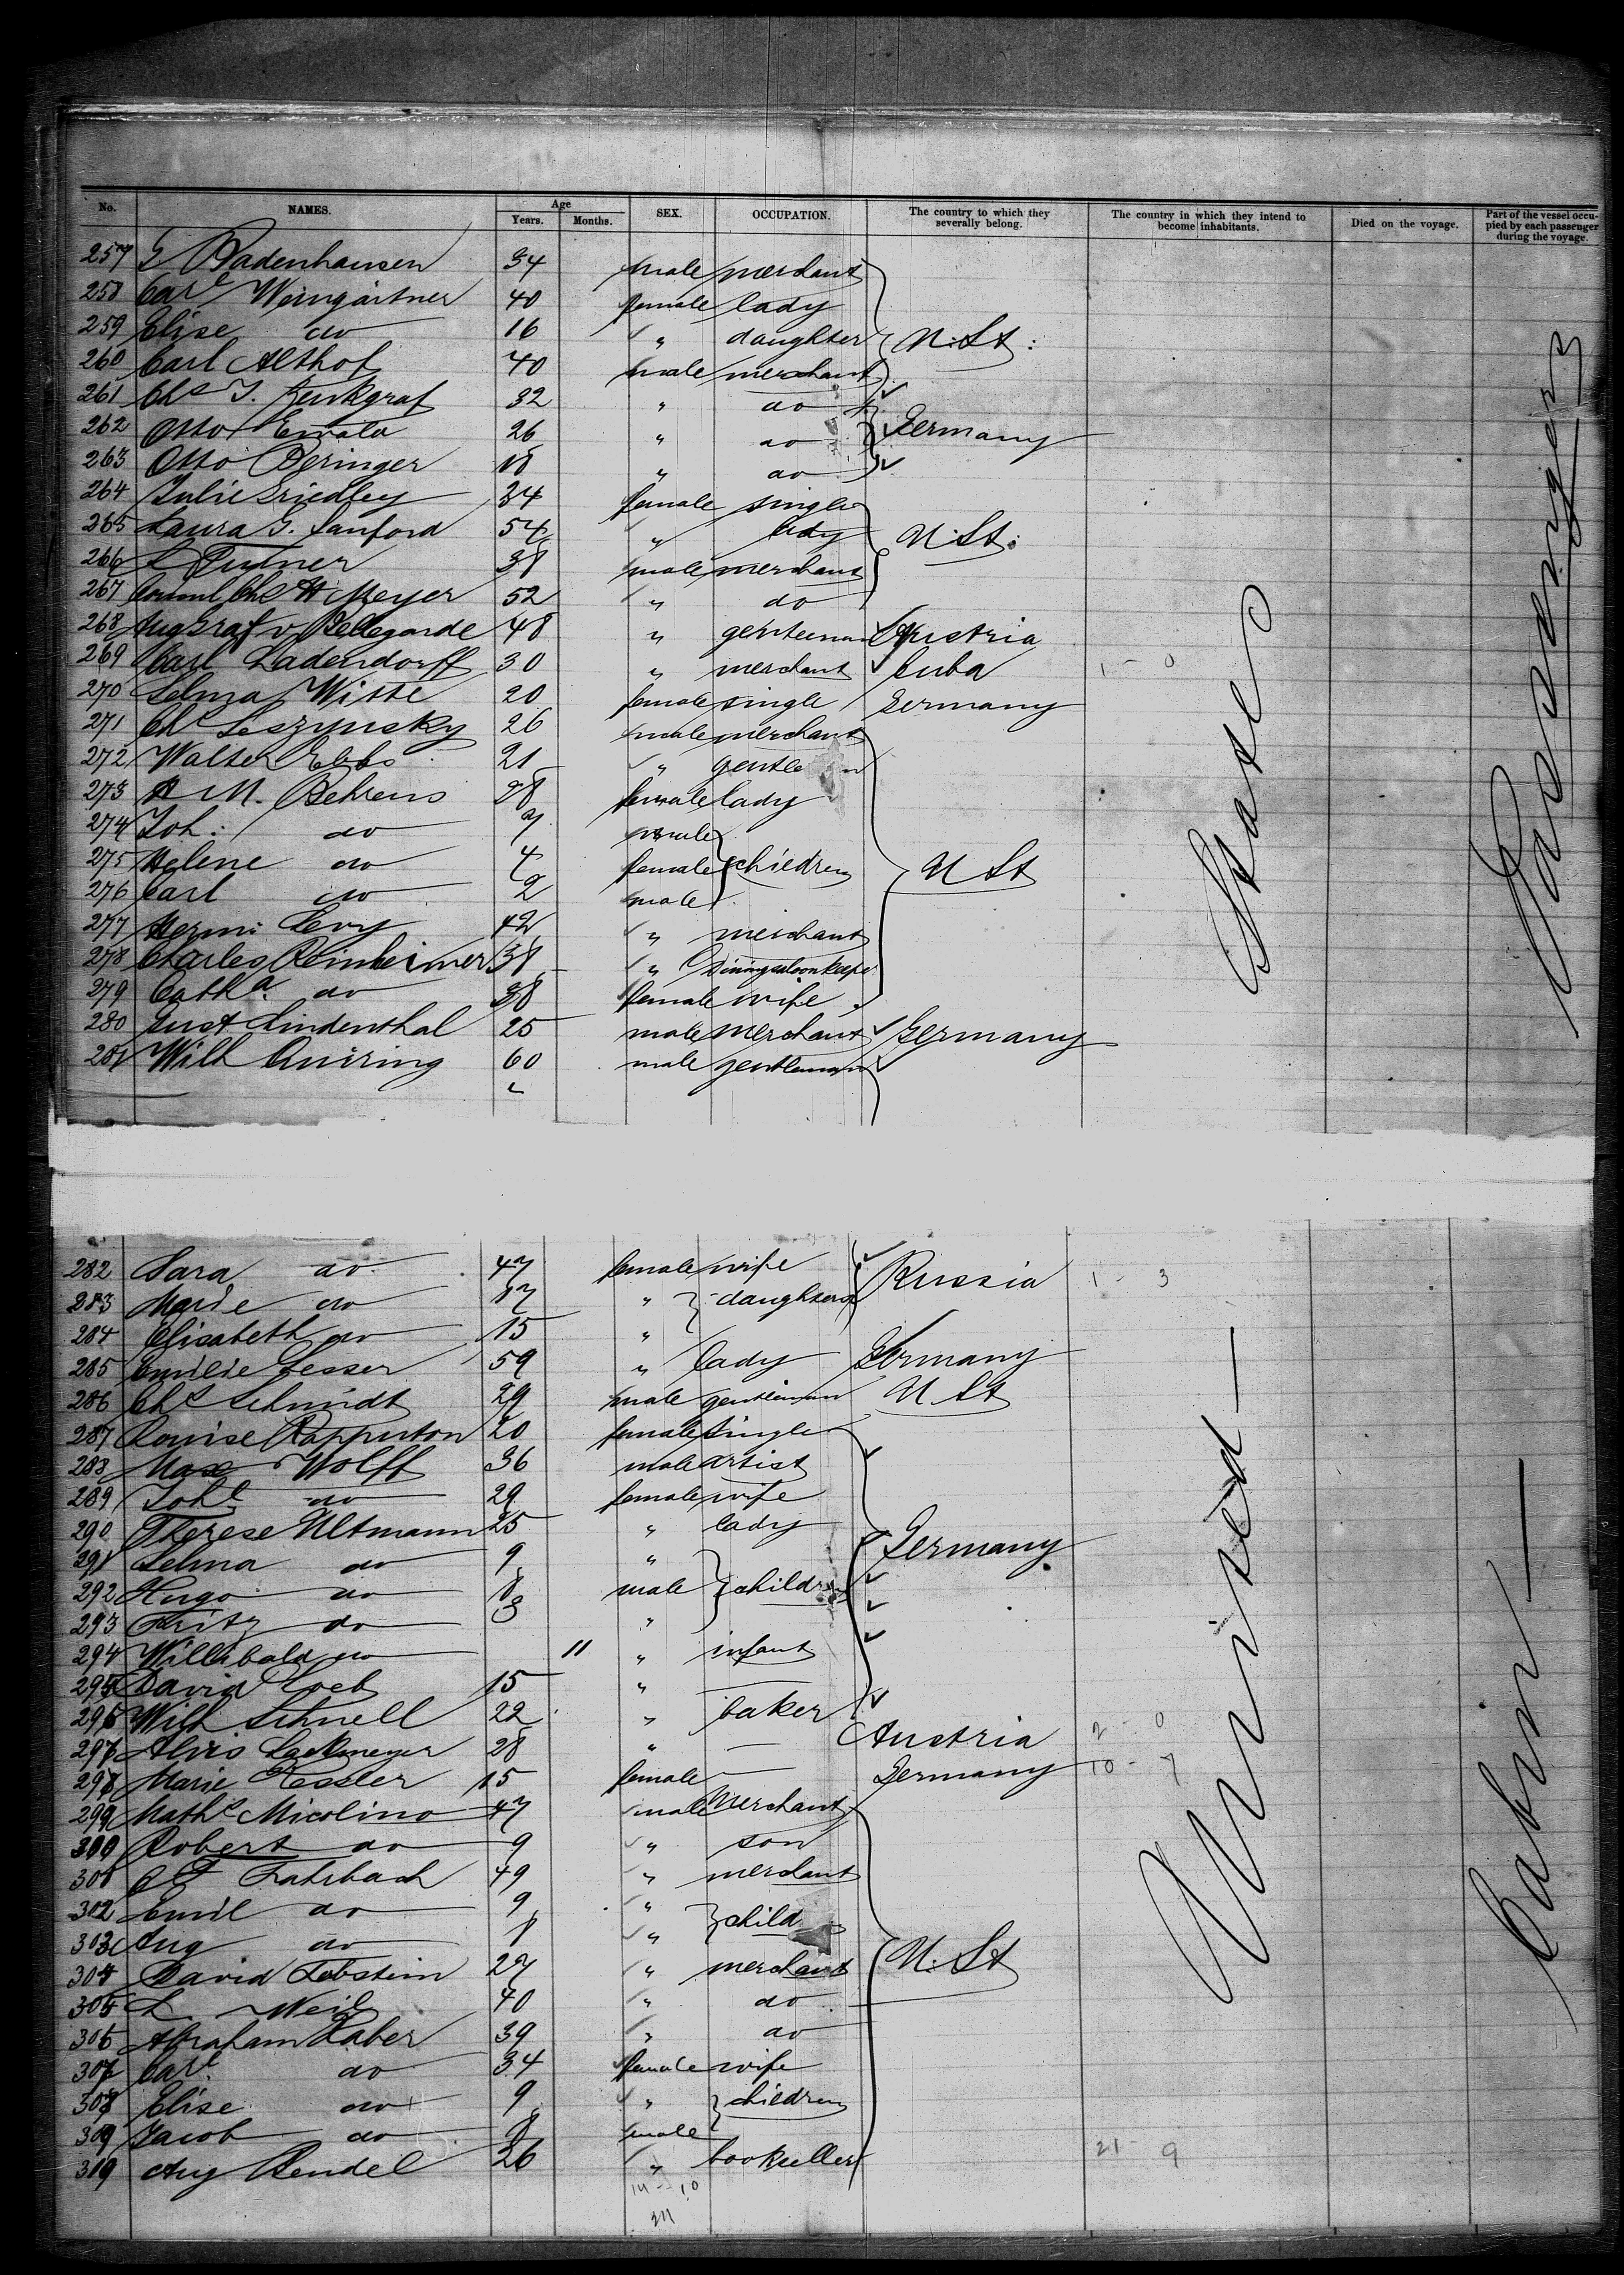 No. NAMES. Age Years. Months. SEX. OCCUPATION. The country to which they severally belong. The country in which they intend to become inhabitants. Died on the voyage. Part of the vessel occupied by each passenger during the voyage.
257 G Badenhausen 34 male merchant
258 Carl Weingärtner 40 female lady
259 Elise do 16 " daughter U. St:
260 Carl Althof 40 male merchant
261 Chs J. Renkgraf 32 " do
262 Otto Ewald 26 " do Germany
263 Otto Beringer 18 " do
264 Julie Griedley 34 female single
265 Laura G. Sanford 54 " lady U. St:
266 L 38 male merchant
267 Consul Chs H Meyer 52 " do
268 Aug Graf v Bellegarde 48 " gentleman Austria
269 Carl Ladendorff 30 " merchant Cuba 1 - 0
270 Selma Witte 20 female single Germany
271 Chs Leszynsky 26 male merchant
272 Walter Ebbs 21 " gentleman
273 A M. Behrens 28 female lady
274 Joh. do 7 male
275 Helene do 4 female children U St
276 Carl do 2 male
277 Hermn Levy 42 " merchant
278 Charles Reinheimer 38 " Diningsaloonkeeper
279 Catha. do 38 female wife
280 Gust Lindenthal 25 male merchant Germany
281 Wilh Quiring 60 male gentleman
282 Sara do 47 female wife Russia 1 - 3
283 Marie do 17 " daughters
284 Elisabeth do 15 "
285 Emilie Lesser 59 " lady Germany
286 Chs Schmidt 29 male gentleman U St
287 Louise Rapputon 20 female single
288 Max Wolff 36 male artist
289 Joh do 29 female wife
290 Therese Ultmann 25 " lady
291 Selma do 9 " Germany
292 Hugo do 8 male children
293 Fritz do 3 "
294 Willibald do 11 " infant
295 David Loeb 15 "
296 Wilh Schnell 22 " baker
297 Alois Lackmeyer 28 " — Austria 2 - 0
298 Marie Kessler 15 female — Germany 10 - 7
299 Maths Micolino 47 male Merchant
300 Robert do 9 " son
301 Fahrbach 49 " merchant
302 Emil do 9 " child
303 Aug do 8 "
304 David Lobstein 27 " merchant U. St
305 L. Weil 40 " do
306 Abraham Raber 39 " do
307 Carl. do 34 female wife
308 Elise do 9 " children
309 Jacob do 8 male
310 Aug Rendel 26 " bookseller 21 - 9
14 - 10
United States
Cabin Passengers